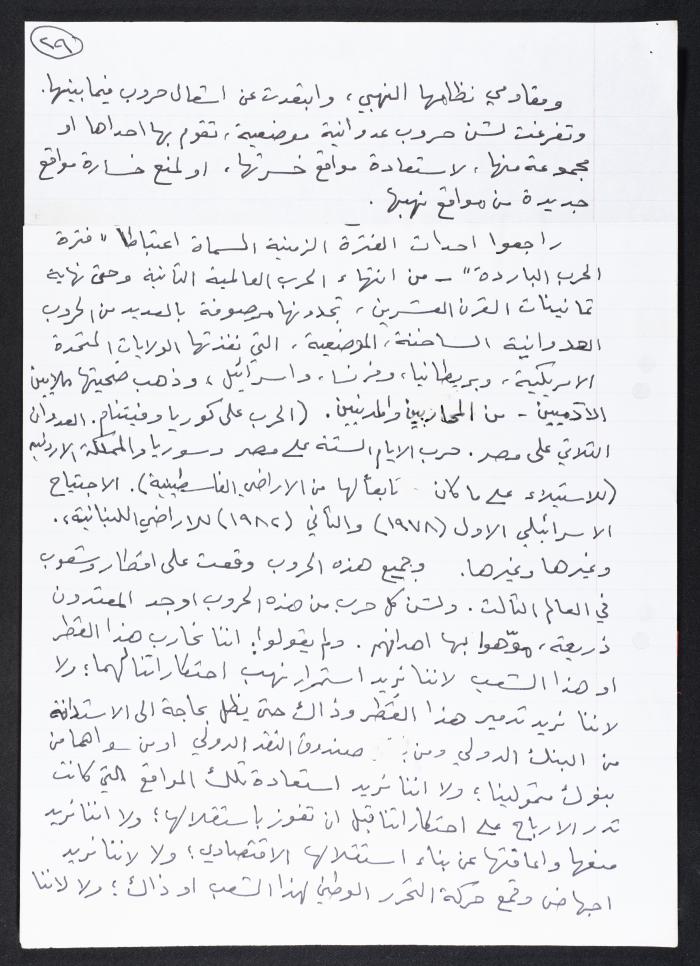 ٢٩
ومقاومي نظامها النهبي، وابتعدت عن اشعال حروب فيما بينها.
وتفرغت لشن حروب عدوانية موضعية، تقوم بها احداها او
مجموعة منها، لاستعادة مواقع خسرتها، او لمنع خسارة مواقع
جديدة من مواقع نهبها.
راجعوا احداث الفترة الزمنية المسماة اعتباطاً "فترة
الحرب الباردة" - من انتهاء الحرب العالمية الثانية وحتى نهاية
ثمانينات القرن العشرين، تجدونها مرصوفة بالعديد من الحروب
العدوانية الساخنة، الموضعية، التي نفذتها الولايات المتحدة
الامريكية، وبريطانيا، وفرنسا، واسرائيل، وذهب ضحيتها ملايين
الآدميين - من المحاربين والمدنيين. (الحرب على كوريا وفيتنام. العدوان
الثلاثي على مصر. حرب الايام الستة على مصر وسوريا والمملكة الاردنية
(للاستيلاء على ما كان تابعاً لها من الاراضي الفلسطينية). الاجتياح
الاسرائيلي الاول (١٩٧٨) والثاني (١٩٨٢) للاراضي اللبنانية،.
وغيرها وغيرها. وجميع هذه الحروب وقعت على اقطار وشعوب
في العالم الثالث. ولشن كل حرب من هذه الحروب اوجد المعتدون
ذريعة، موّهوا بها اهدافهم. ولم يقولوا: اننا نحارب هذا القطر
او هذا الشعب لاننا نريد استمرار نهب احتكاراتنا لهما؛ ولا
لاننا نريد تدمير هذا القطر وذاك حتى يظل بحاجة الى الاستدانة
من البنك الدولي ومن صندوق النقد الدولي او من سواهما من
بنوك ممولينا؛ ولا اننا نريد استعادة تلك المواقع التي كانت
تدر الارباح على احتكاراتنا قبل ان تفوز باستقلالها؛ ولا اننا نريد
منعها واعاقتها عن بناء استقلالها الاقتصادي؛ ولا لاننا نريد
اجهاض وقمع حركة التحرر الوطني لهذا الشعب او ذاك؛ ولا لاننا